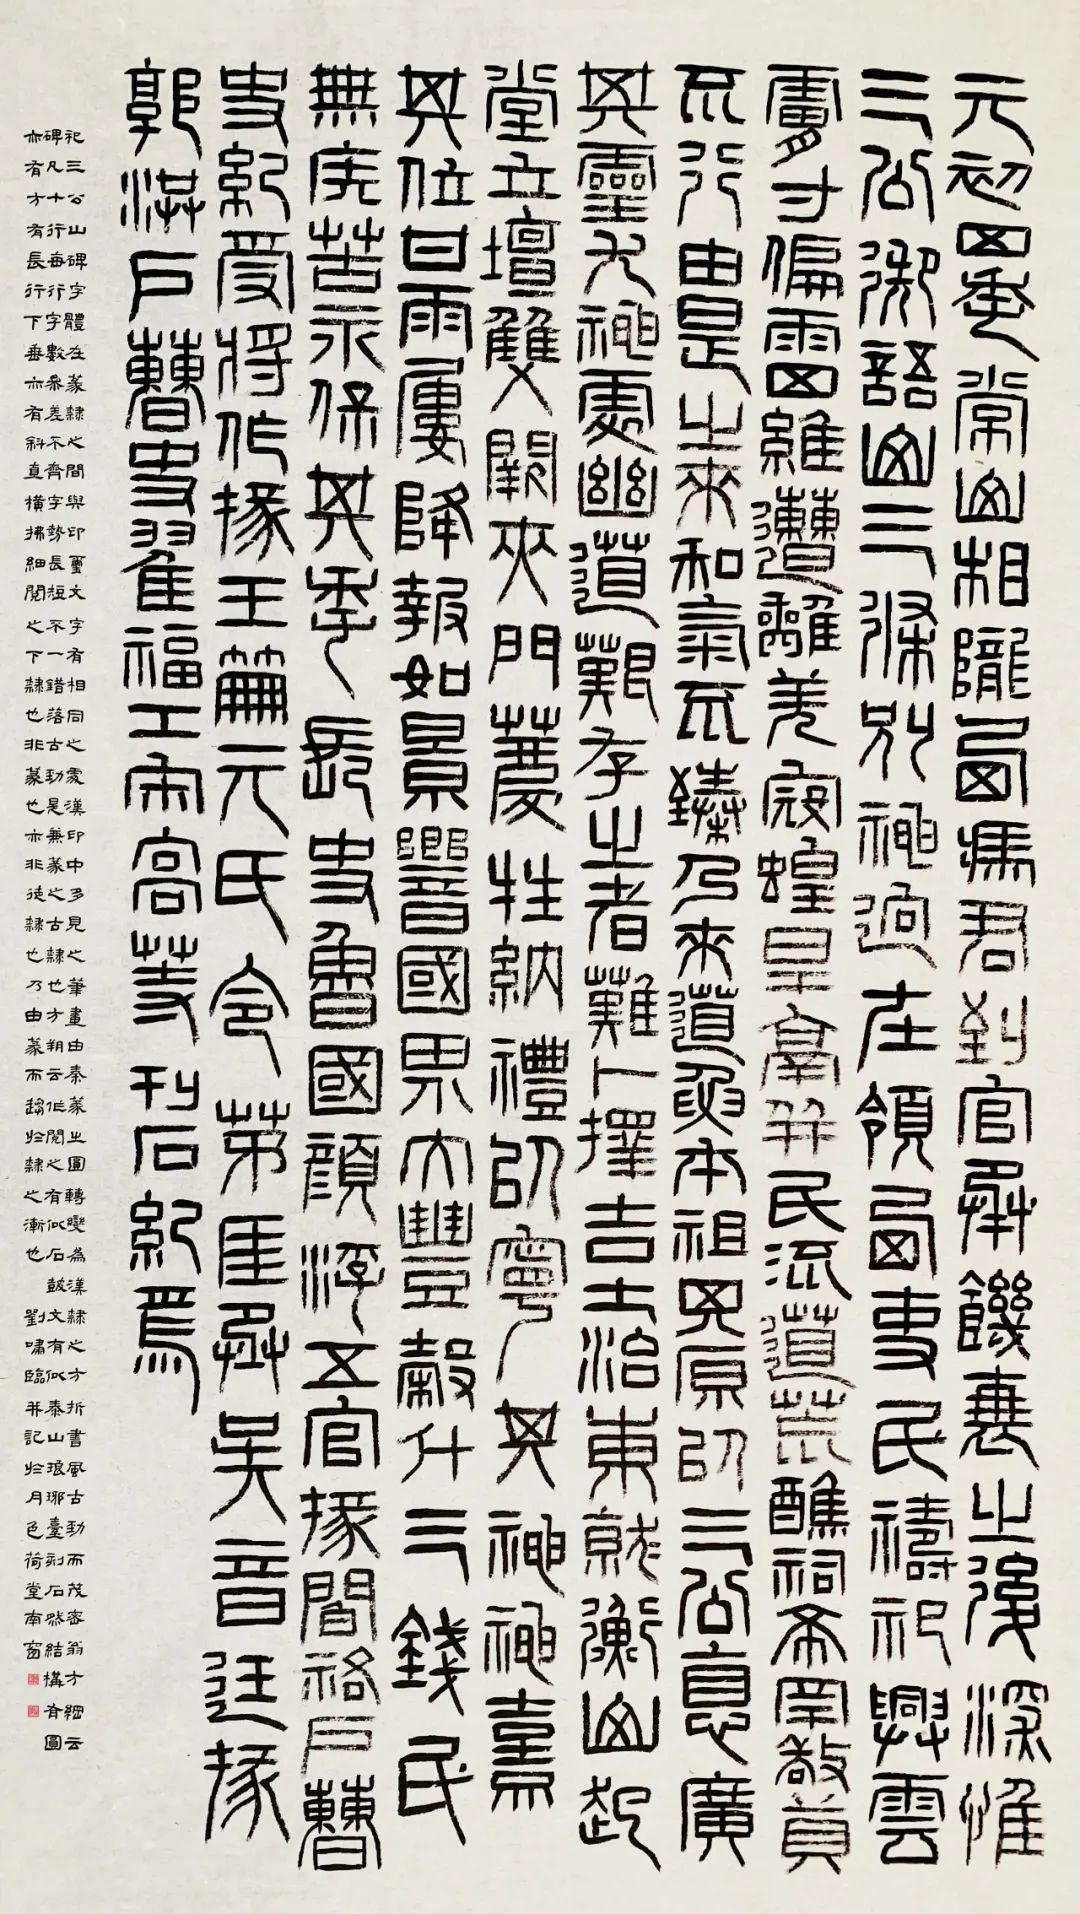 元初四年常山相隴西馮君到官承饑衰之後深惟
三公御語山三條別神迥在領西吏民禱祀興雲
膚寸徧雨四維遭離羌寇蝗旱鬲并民流道荒醮祠希罕敬奠
不行由是之來和氣不臻乃來道要本祖其原以三公惪廣
其靈尤神處幽道艱存之者難卜擇吉土治東就衡山起
堂立壇雙闕夾門薦牲納禮以寧其神神熹
其位甘雨屢降報如景響國界大豐穀斗三錢民
無疾苦永保其年長史魯國顏浮五官掾閻祐戶曹
史紀受將作掾王筴元氏令茅匡丞吳音廷掾
郭洪戶曹史翟福工宋高等刊石紀焉
祀三公山碑字體在篆隸之間與印璽文字有相同之處漢印中多見之筆畫由秦篆之圓轉變為漢隸之方折書風古勁而茂密翁方綱云
碑凡十行每行字數參差不齊字勢長短不一錯落古勁是兼篆之古隸也方朔云乍閱之有似石鼓文有似泰山琅琊臺刻石然結構有圓
亦有方有長行下垂亦有斜直橫拂細閱之下隸也非篆也亦非徒隸也乃由篆而趨於隸之漸也 劉嘯臨并記於月色荷堂南窗